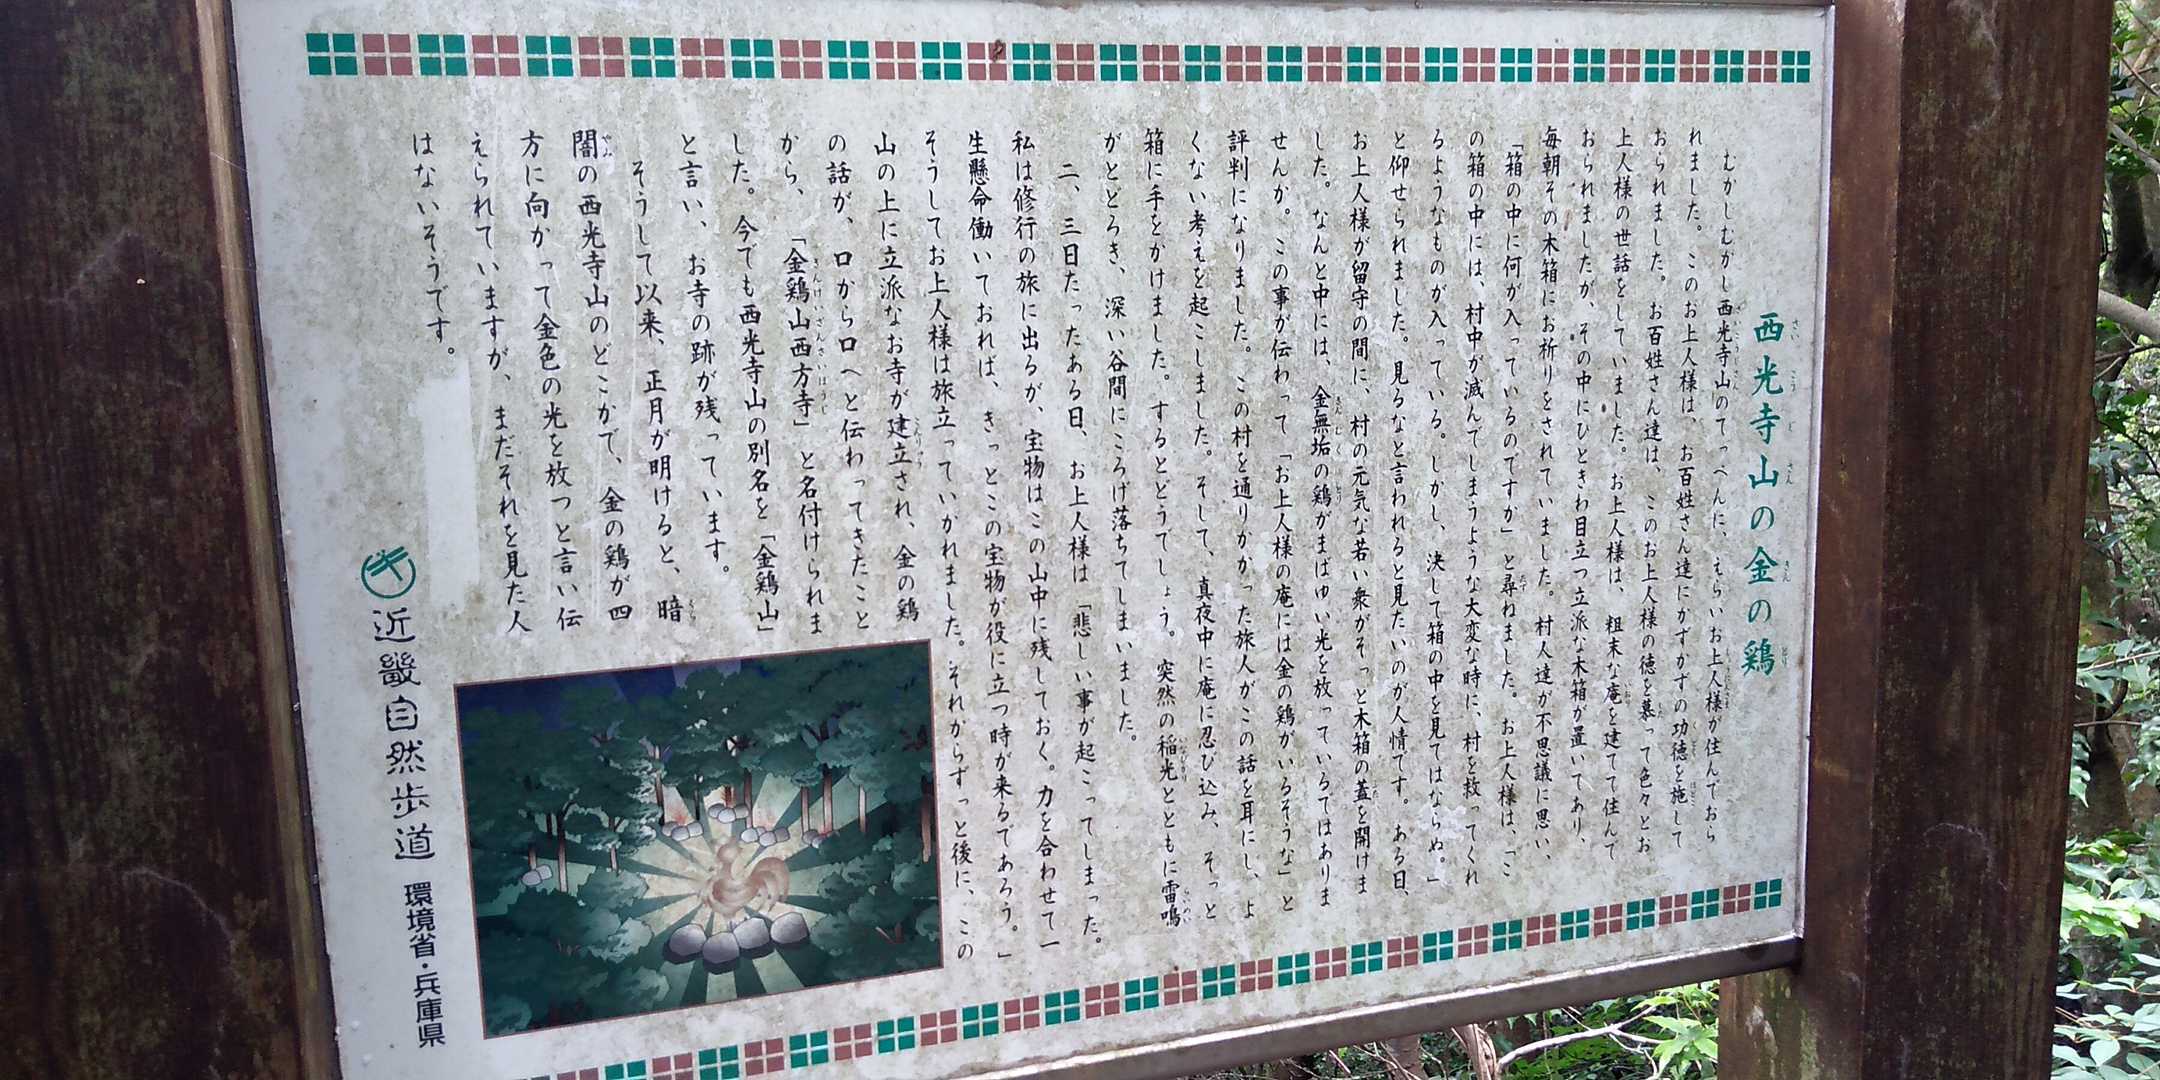 西光寺山の金の鶏
むかしむかし西光寺山のてっぺんに、えらいお上人様が住んでおら
れました。このお上人様は、お百姓さん達にかずかずの功徳を施して
おられました。お百姓さん達は、このお上人様の徳を慕って色々とお
上人様の世話をしていました。お上人様は、粗末な庵を建てて住んで
おられましたが、その中にひときわ目立つ立派な木箱が置いてあり、
毎朝その木箱にお祈りをされていました。村人達が不思議に思い、
「箱の中に何が入っているのですか」と尋ねました。お上人様は、「こ
の箱の中には、村中が滅んでしまうような大変な時に、村を救ってくれ
るようなものが入っている。しかし、決して箱の中を見てはならぬ。」
と仰せられました。見るなと言われると見たいのが人情です。ある日、
お上人様が留守の間に、村の元気な若い衆がそっと木箱の蓋を開けま
した。なんと中には、金無垢の鶏がまばゆい光を放っているではありま
せんか。この事が伝わって「お上人様の庵には金の鶏がいるそうな」と
評判になりました。この村を通りかかった旅人がこの話を耳にし、よ
くない考えを起こしました。そして、真夜中に庵に忍び込み、そっと
箱に手をかけました。するとどうでしょう。突然の稲光とともに雷鳴
がとどろき、深い谷間にころげ落ちてしまいました。
二、三日たったある日、お上人様は「悲しい事が起こってしまった。
私は修行の旅に出るが、宝物はこの山中に残しておく。力を合わせて一
生懸命働いておれば、きっとこの宝物が役に立つ時が来るであろう。」
そうしてお上人様は旅立っていかれました。それからずっと後に、この
山の上に立派なお寺が建立され、金の鶏
の話が、口から口へと伝わってきたこと
から、「金鶏山西方寺」と名付けられま
した。今でも西光寺山の別名を「金鶏山」
と言い、お寺の跡が残っています。
そうして以来、正月が明けると、暗
闇の西光寺山のどこかで、金の鶏が四
方に向かって金色の光を放つと言い伝
えられていますが、まだそれを見た人
はないそうです。
近畿自然歩道 環境省・兵庫県